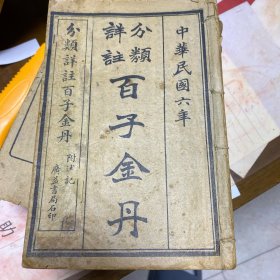 中華民國六年
分類
詳註
百子金丹
分類詳註百子金丹
廣益書局石印